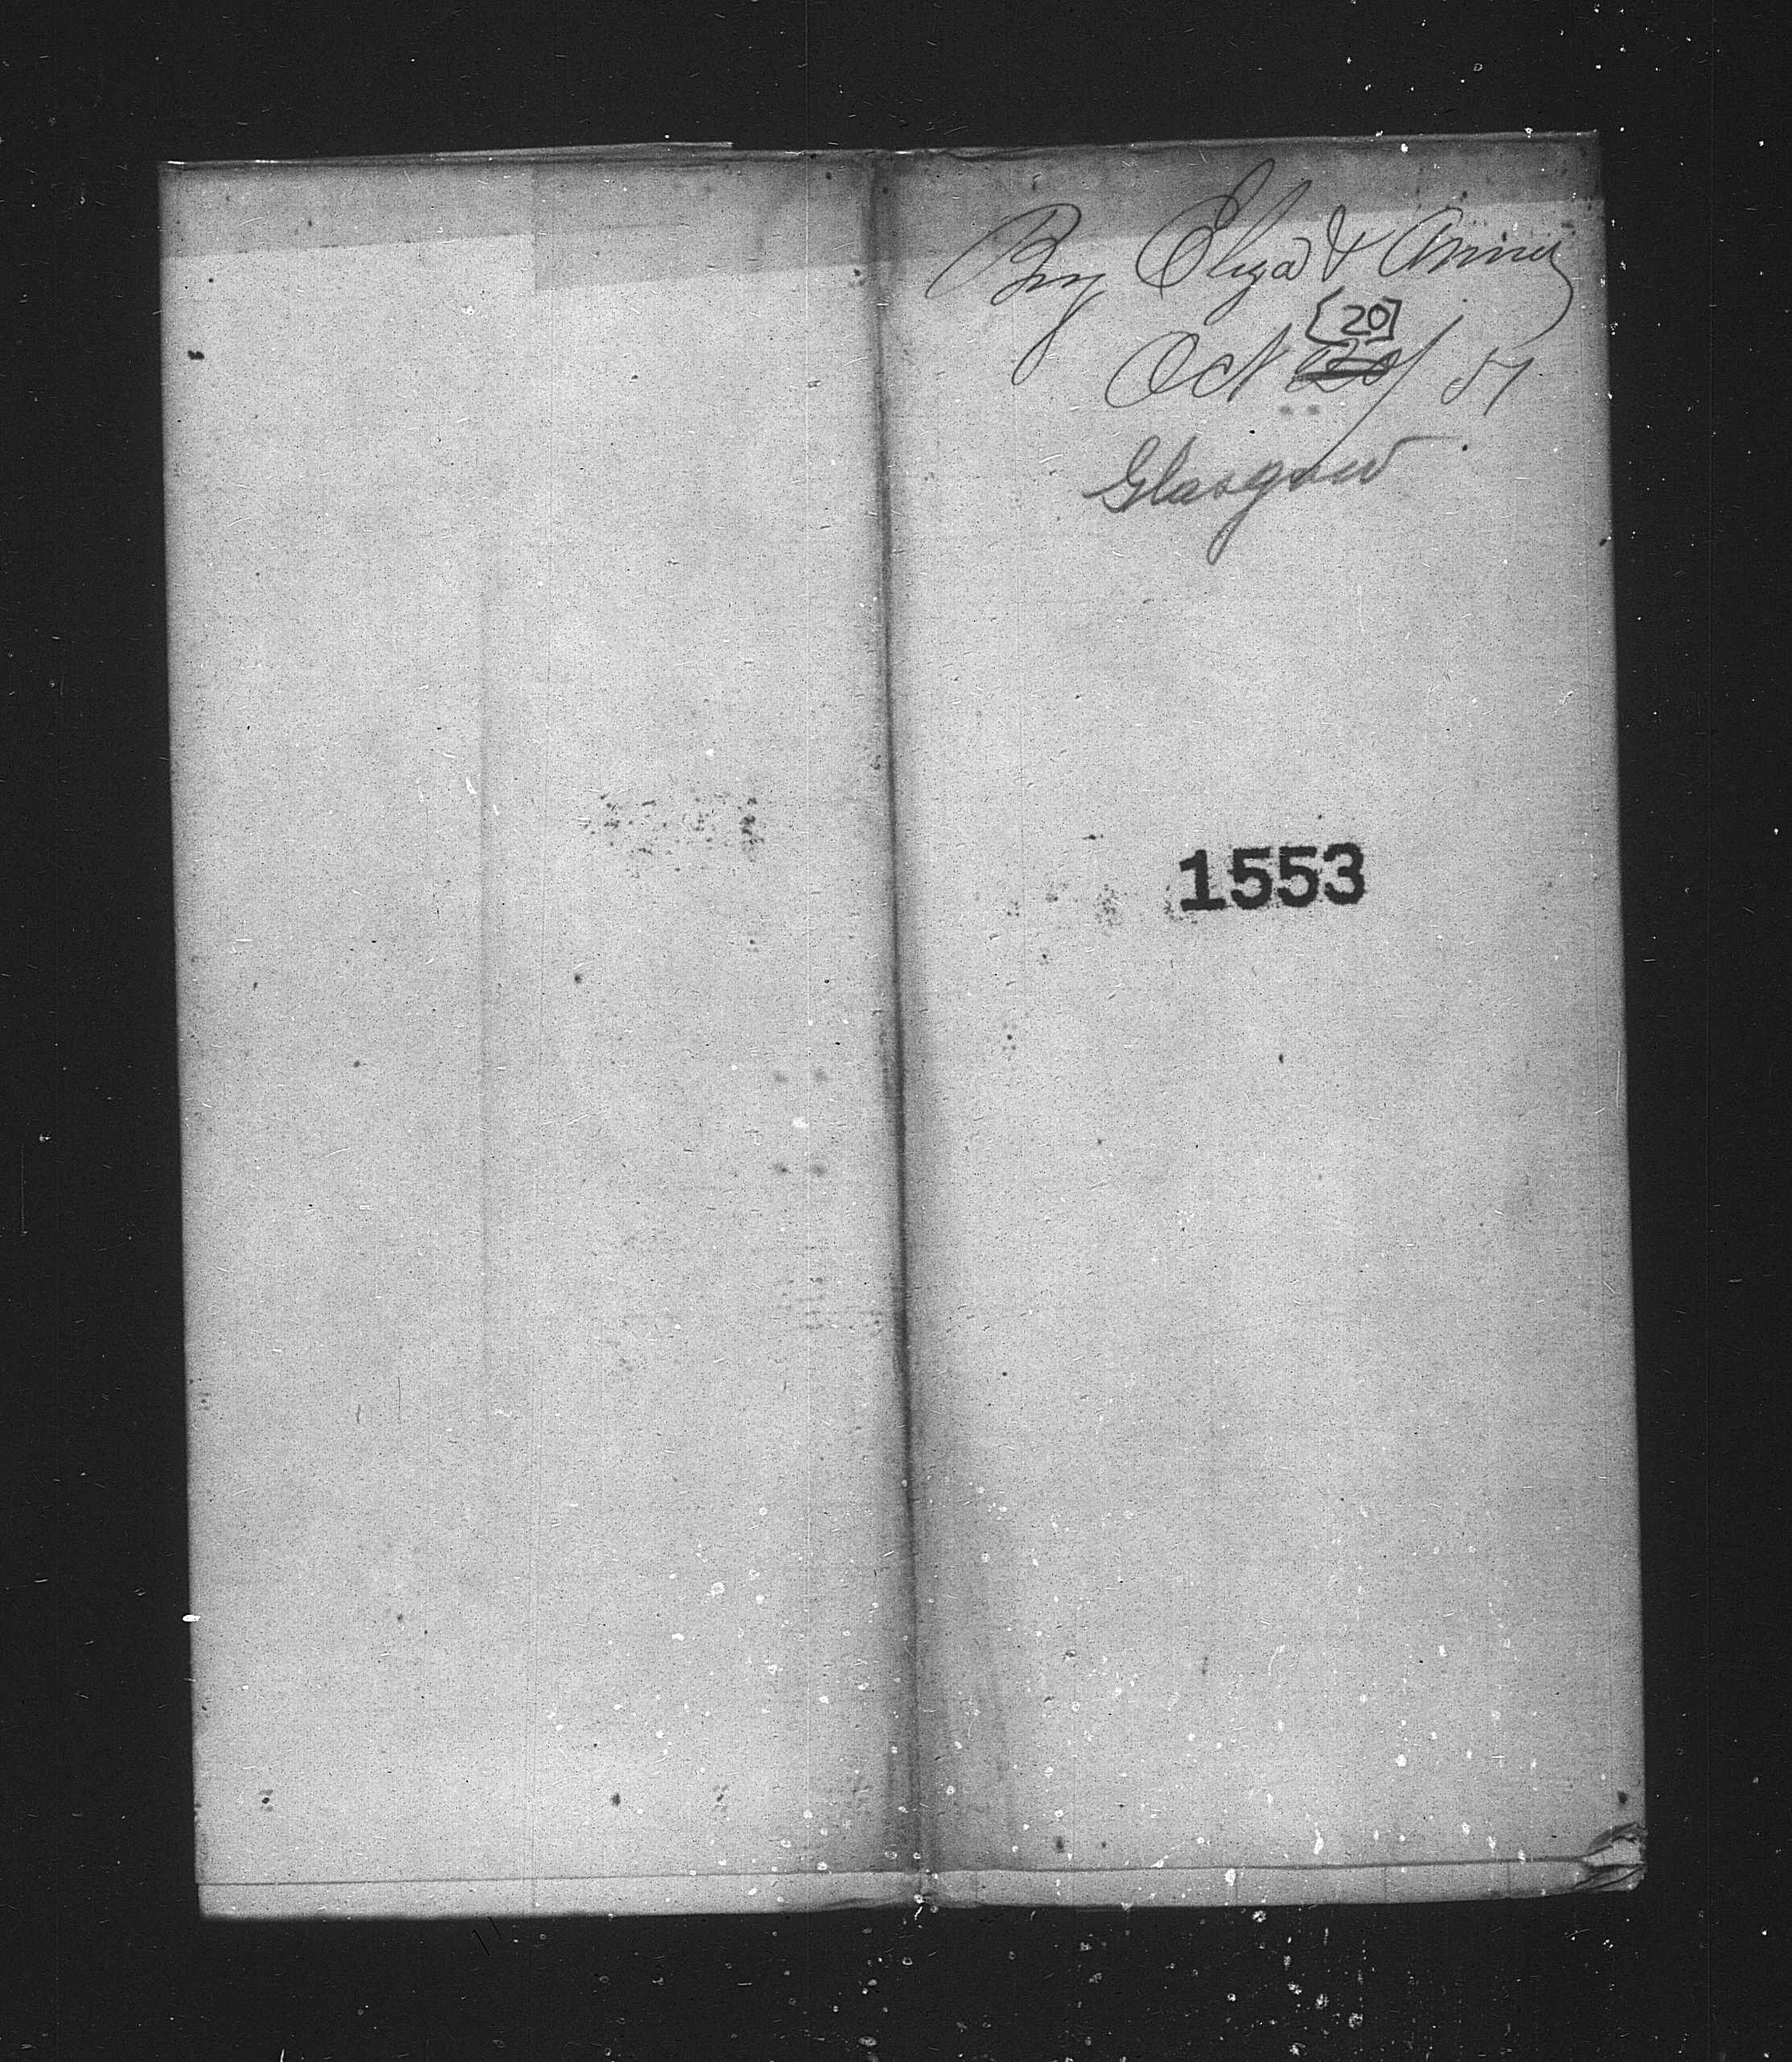 Brig Eliza & Anna
[20]
Oct 20/57
Glasgow
1553